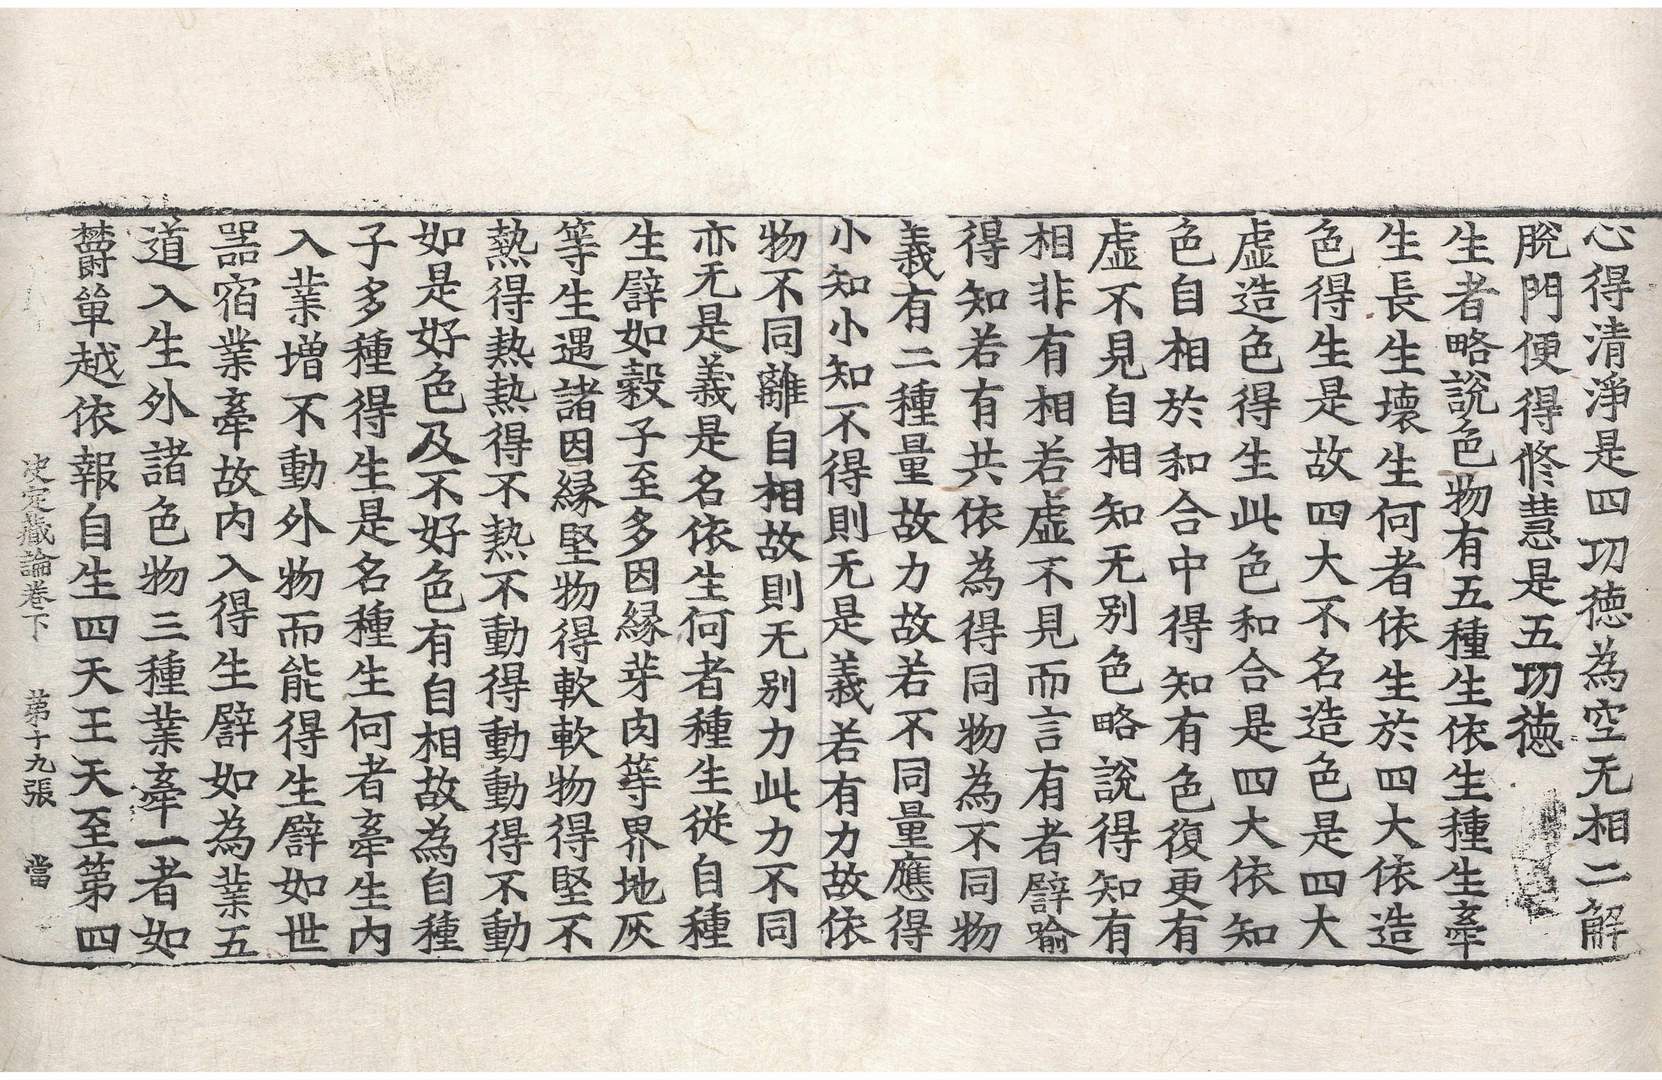 心得清淨是四功德為空无相二解
脫門便得修慧是五功德
生者略說色物有五種生依生種生牽
生長生壞生何者依生於四大依造
色得生是故四大不名造色是四大
虛造色得生此色和合是四大依知
色自相於和合中得知有色復更有
虛不見自相知无別色略說得知有
相非有相若虛不見而言有者譬喻
得知若有共依為得同物為不同物
義有二種量故力故若不同量應得
小知小知不得則无是義若有力故依
物不同離自相故則无別力此力不同
亦无是義是名依生何者種生從自種
生譬如穀子至多因緣芽肉等界地灰
等生遇諸因緣堅物得軟軟物得堅不
熱得熱熱得不熱不動得動動得不動
如是好色及不好色有自相故為自種
子多種得生是名種生何者牽生內
入業增不動外物而能得生譬如世
器宿業牽故內入得生譬如為業五
道入生外諸色物三種業牽一者如
欝單越依報自生四天王天至第四
決定藏論卷下 第十九張 當